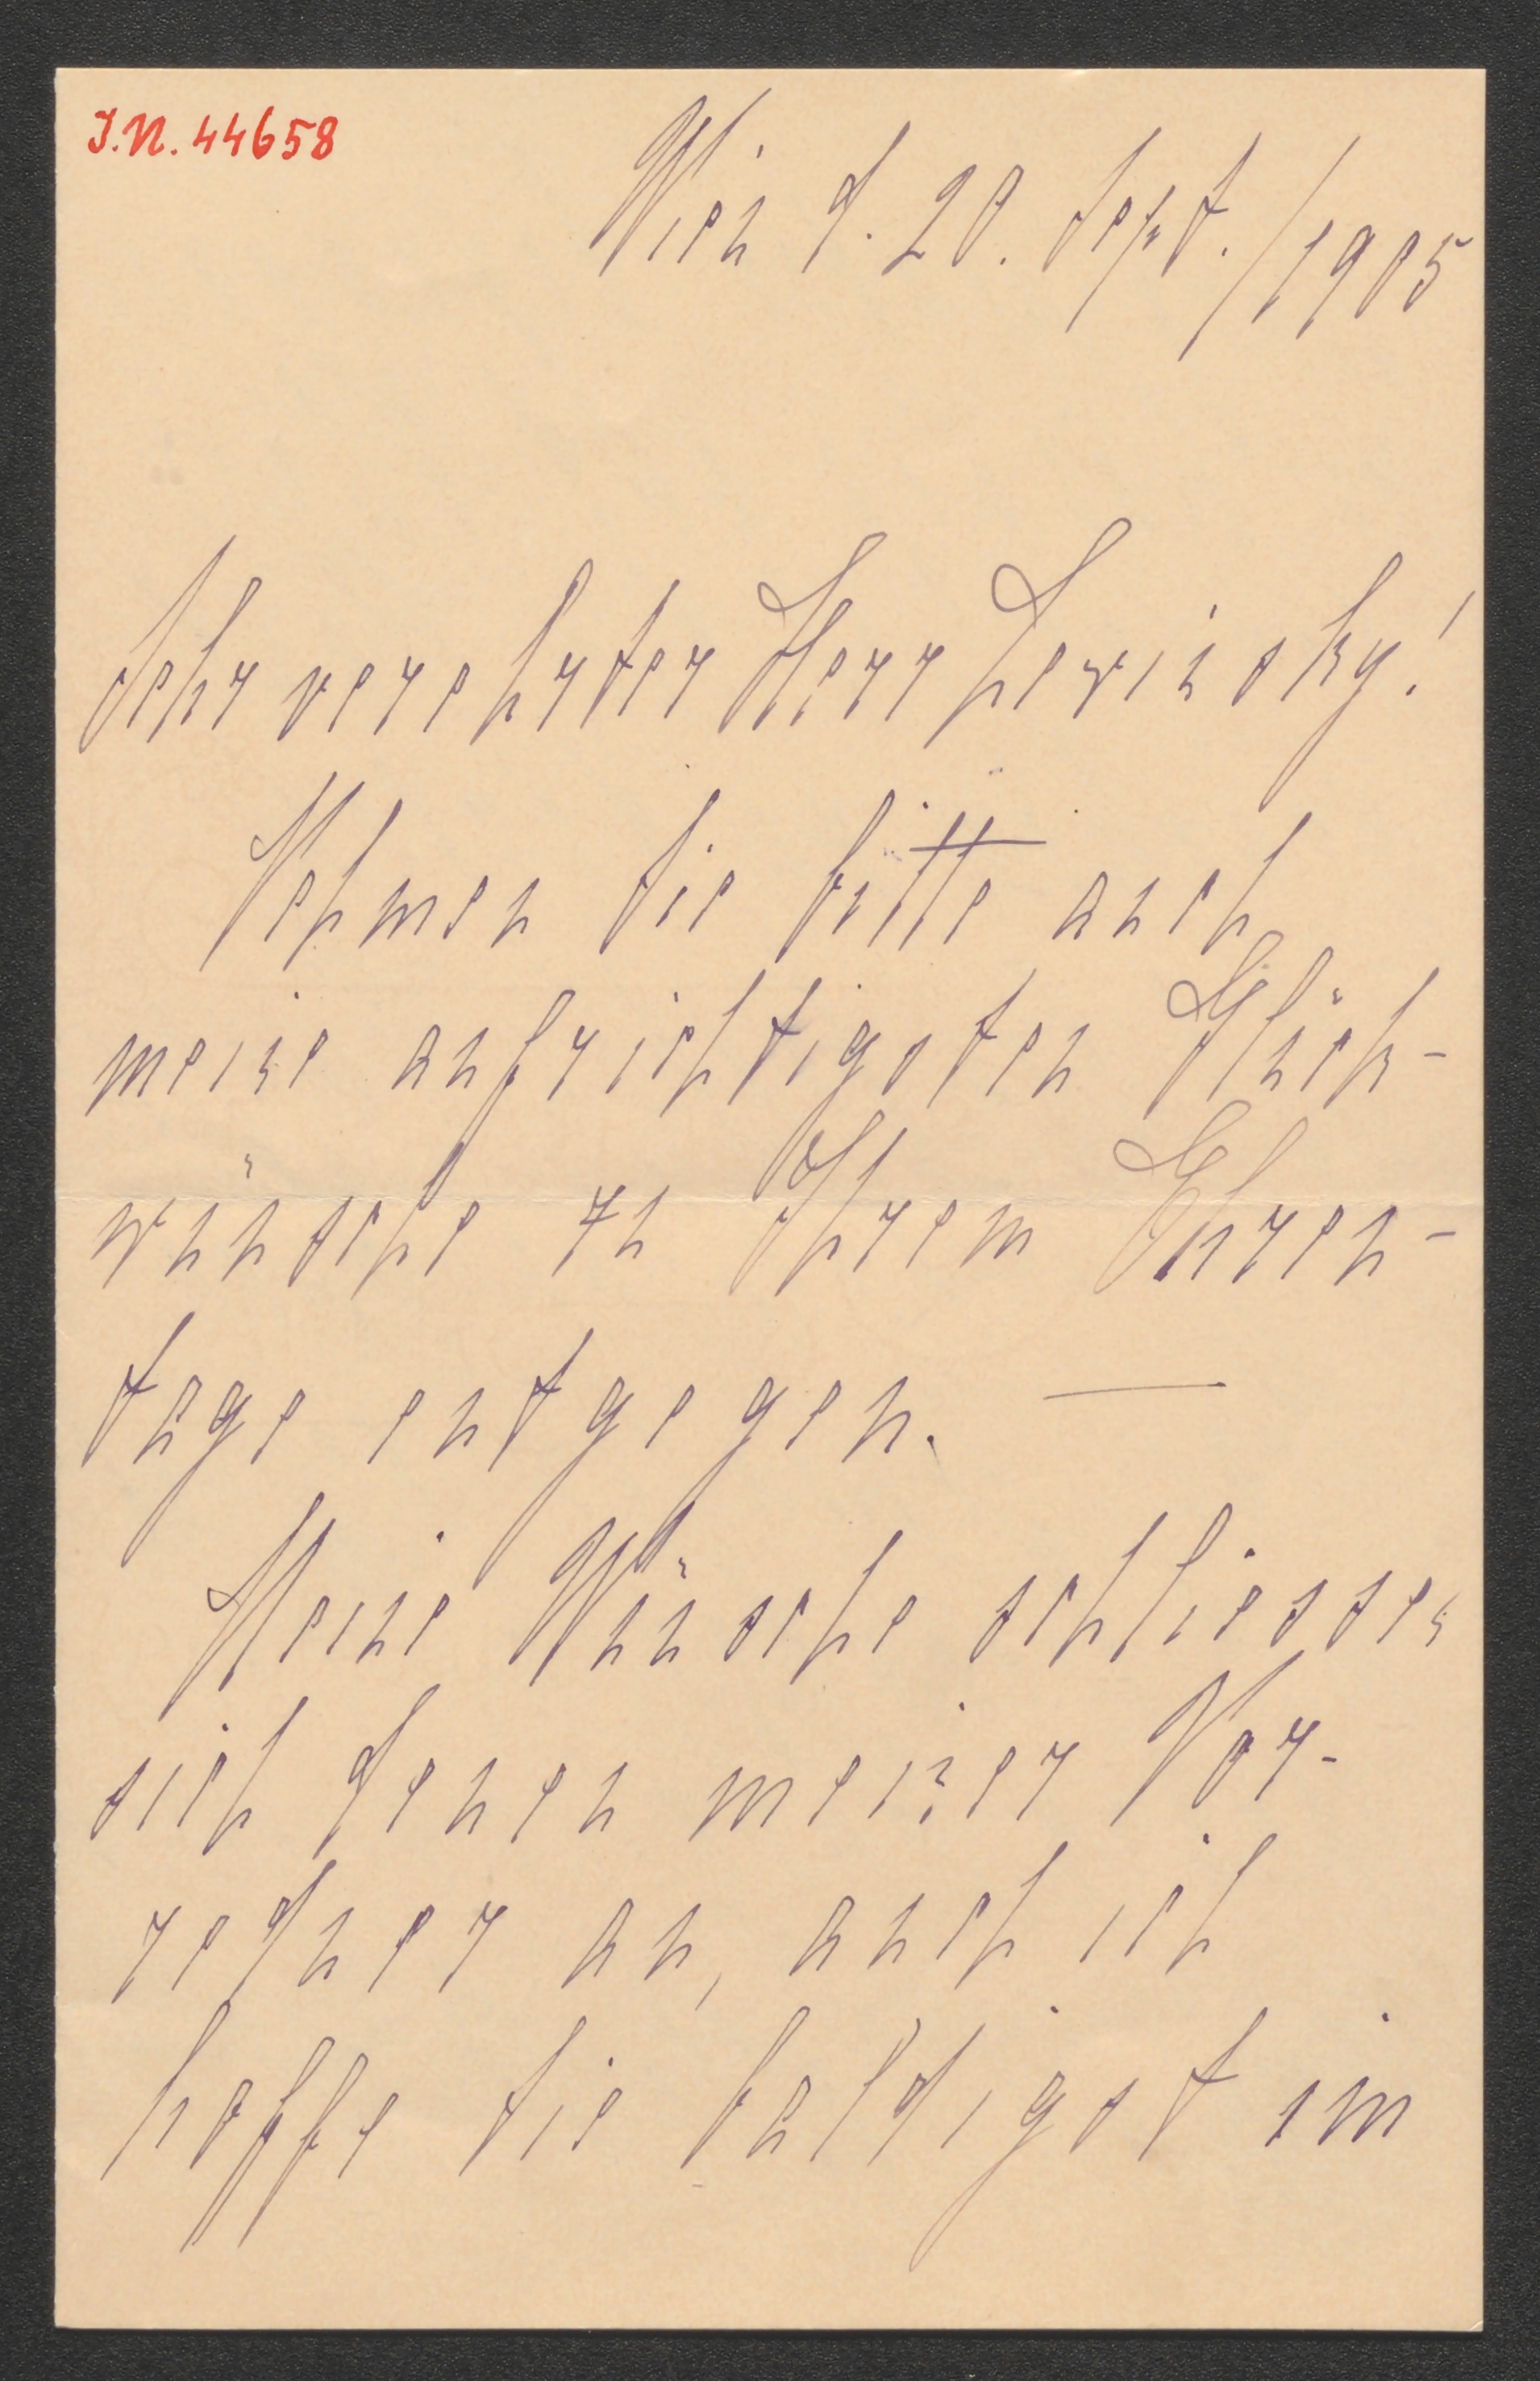 J.N. 44658
Wien d. 20. Sept. / 1905
Sehr verehrter Herr Lewinsky!
Nehmen Sie bitte auch
meine aufrichtigsten Glück-
wünsche zu Ihrem Ehren-
tage entgegen. —
Meine Wünsche schliessen
sich denen meiner Vor-
redner an, auch ich
hoffe Sie baldigst im